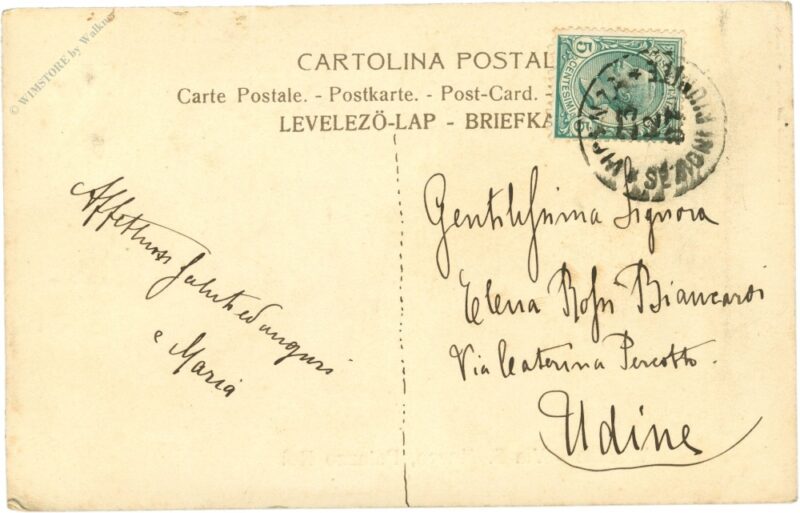 © WIMSTORE by Walkner
CARTOLINA POSTAL
Carte Postale. - Postkarte. - Post-Card. -
LEVELEZÖ-LAP - BRIEFKA
5
CENTESIMI
5
Affettuosi Saluti ed auguri
e Maria
Gentilissima Signora
Elena Rossi Biancardi
Via Caterina Percotto
Udine